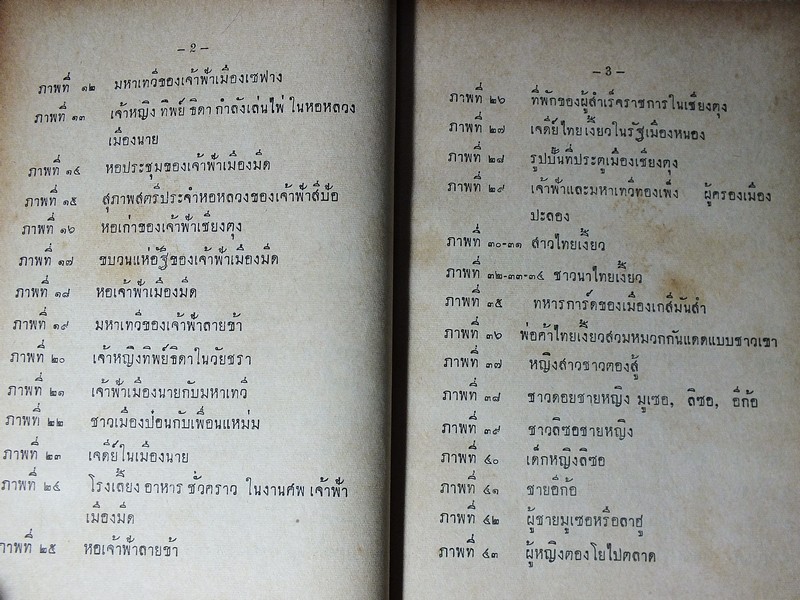 – 2 –
ภาพที่ ๑๒ มหาเทวีของเจ้าฟ้าเมืองเซฟาง
ภาพที่ ๑๓ เจ้าหญิง ทิพย์ ธิดา กำลังเล่นไพ่ ในหอหลวง
เมืองนาย
ภาพที่ ๑๔ หอประชุมของเจ้าฟ้าเมืองมีด
ภาพที่ ๑๕ สุภาพสตรีประจำหอหลวงของเจ้าฟ้าสี่ป้อ
ภาพที่ ๑๖ หอเก่าของเจ้าฟ้าเชียงตุง
ภาพที่ ๑๗ ขบวนแห่อัฐิของเจ้าฟ้าเมืองมีด
ภาพที่ ๑๘ หอเจ้าฟ้าเมืองมีด
ภาพที่ ๑๙ มหาเทวีของเจ้าฟ้าลายข้า
ภาพที่ ๒๐ เจ้าหญิงทิพย์ธิดาในวัยชรา
ภาพที่ ๒๑ เจ้าฟ้าเมืองนายกับมหาเทวี
ภาพที่ ๒๒ ชาวเมืองป๋อนกับเพื่อนแหม่ม
ภาพที่ ๒๓ เจดีย์ในเมืองนาย
ภาพที่ ๒๔ โรงเลี้ยง อาหาร ชั่วคราว ในงานศพ เจ้าฟ้า
เมืองมีด
ภาพที่ ๒๕ หอเจ้าฟ้าลายข้า
– 3 –
ภาพที่ ๒๖ ที่พักของผู้สำเร็จราชการในเชียงตุง
ภาพที่ ๒๗ เจดีย์ไทยเงี้ยวในรัฐเมืองหนอง
ภาพที่ ๒๘ รูปปั้นที่ประตูเมืองเชียงตุง
ภาพที่ ๒๙ เจ้าฟ้าและมหาเทวีทองเพ็ง ผู้ครองเมือง
ปะลอง
ภาพที่ ๓๐-๓๑ สาวไทยเงี้ยว
ภาพที่ ๓๒-๓๓-๓๔ ชาวนาไทยเงี้ยว
ภาพที่ ๓๕ ทหารการ์ดของเมืองเกสีมันสำ
ภาพที่ ๓๖ พ่อค้าไทยเงี้ยวสวมหมวกกันแดดแบบชาวเขา
ภาพที่ ๓๗ หญิงสาวชาวตองสู้
ภาพที่ ๓๘ ชาวดอยชายหญิง มูเซอ, ลีซอ, อีก้อ
ภาพที่ ๓๙ ชาวลีซอชายหญิง
ภาพที่ ๔๐ เด็กหญิงลีซอ
ภาพที่ ๔๑ ชายอีก้อ
ภาพที่ ๔๒ ผู้ชายมูเซอหรือลาฮู่
ภาพที่ ๔๓ ผู้หญิงตองโยไปตลาด